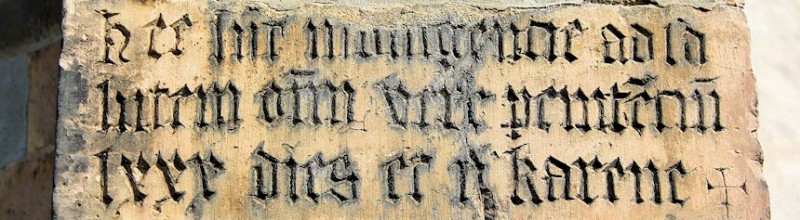 hec sūt indulgencie ad sa
lutem om̄iu vere penitēciū
lxxx dies et ii karene +